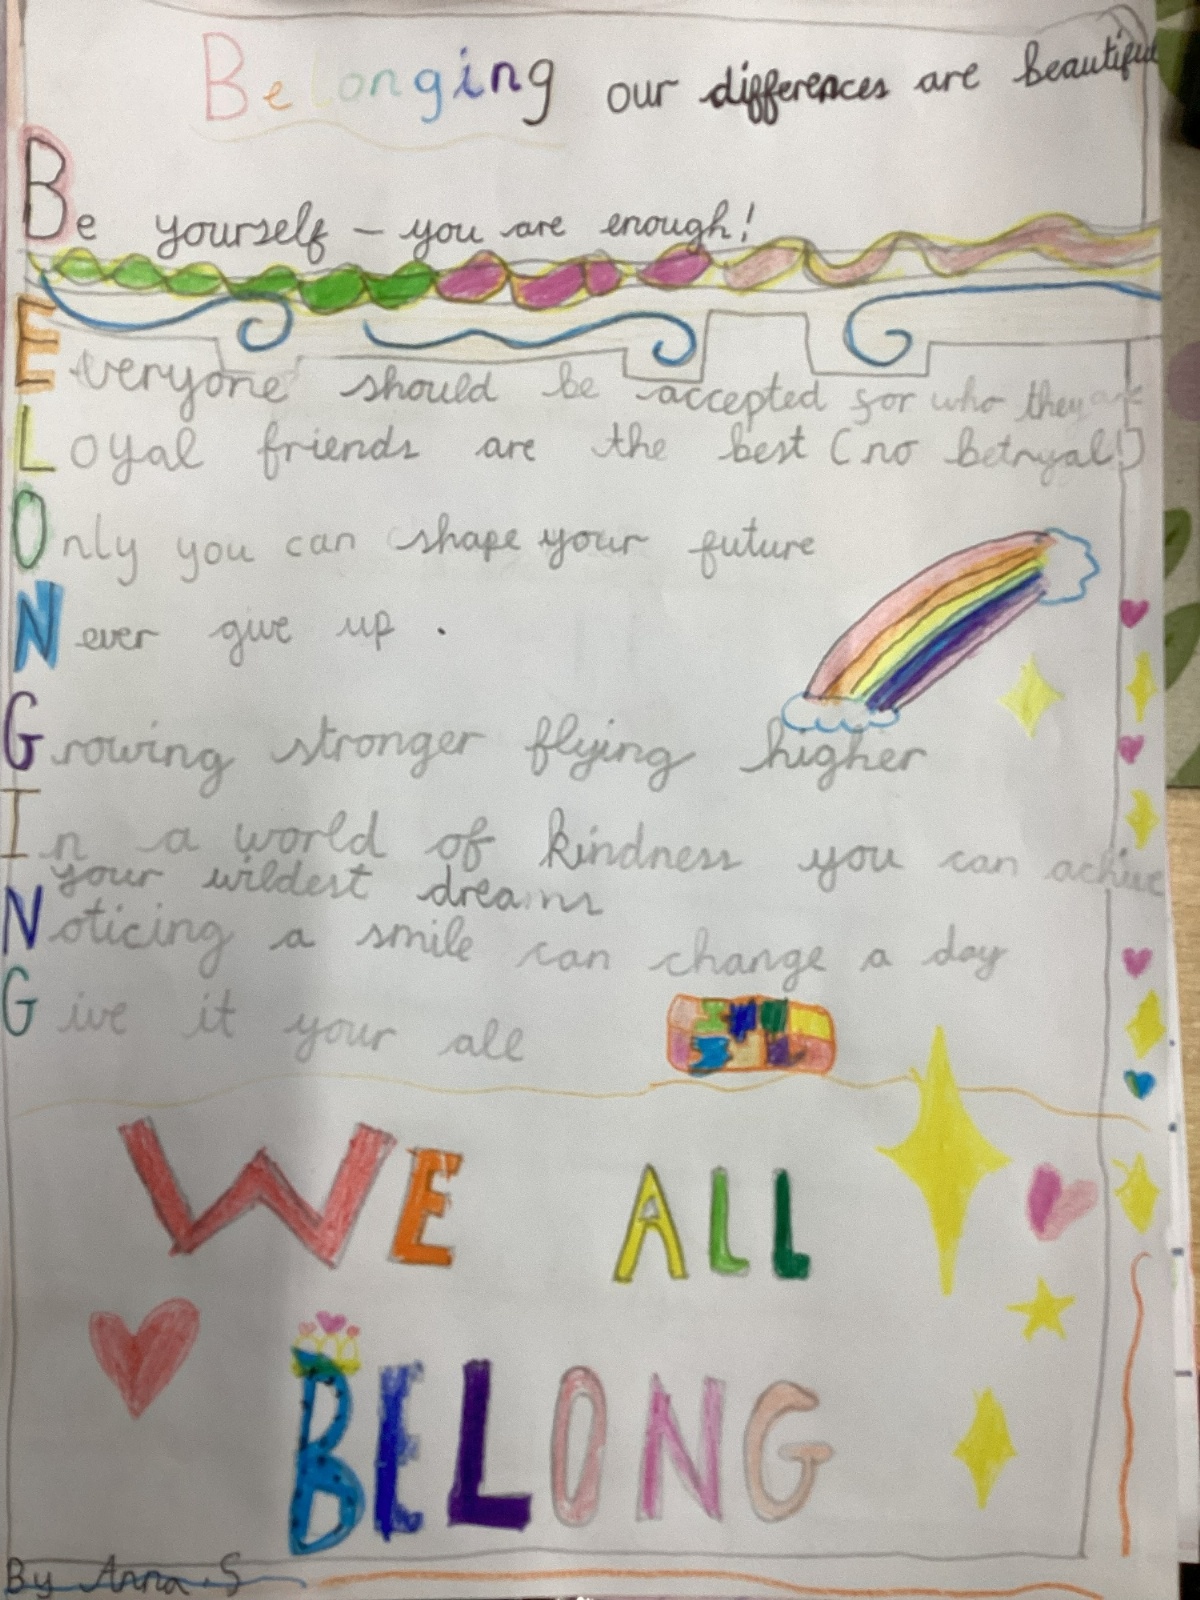 Belonging our differences are beautiful
Be yourself – you are enough!
Everyone should be accepted for who they are
Loyal friends are the best (no betryal!)
Only you can shape your future
Never give up .
Growing stronger flying higher
In a world of kindness you can achive
your wildest dreams
Noticing a smile can change a day
Give it your all
WE ALL
BELONG
By Anna.S